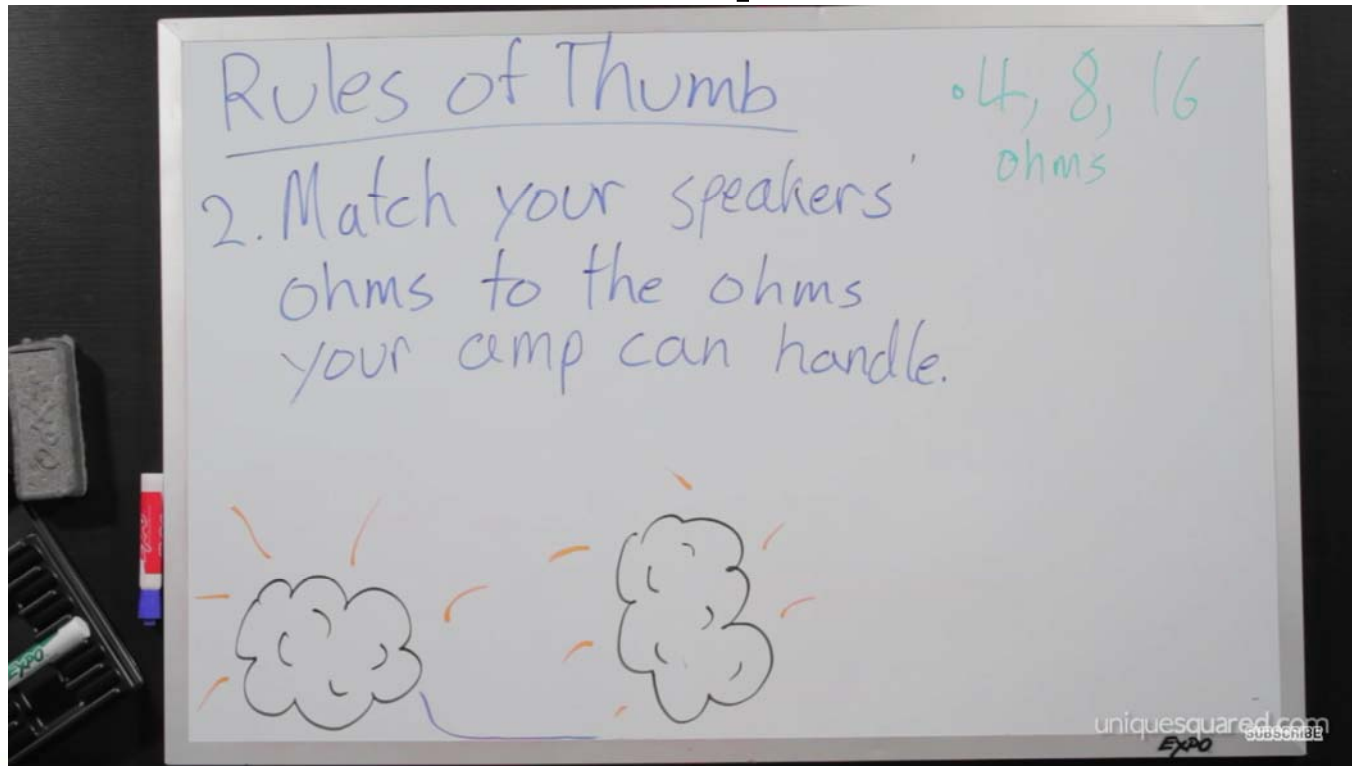 Rules of Thumb
•4, 8, 16
ohms
2. Match your speakers'
ohms to the ohms
your amp can handle.
EXPO
EXPO
uniquesquared.com
SUBSCRIBE
EXPO